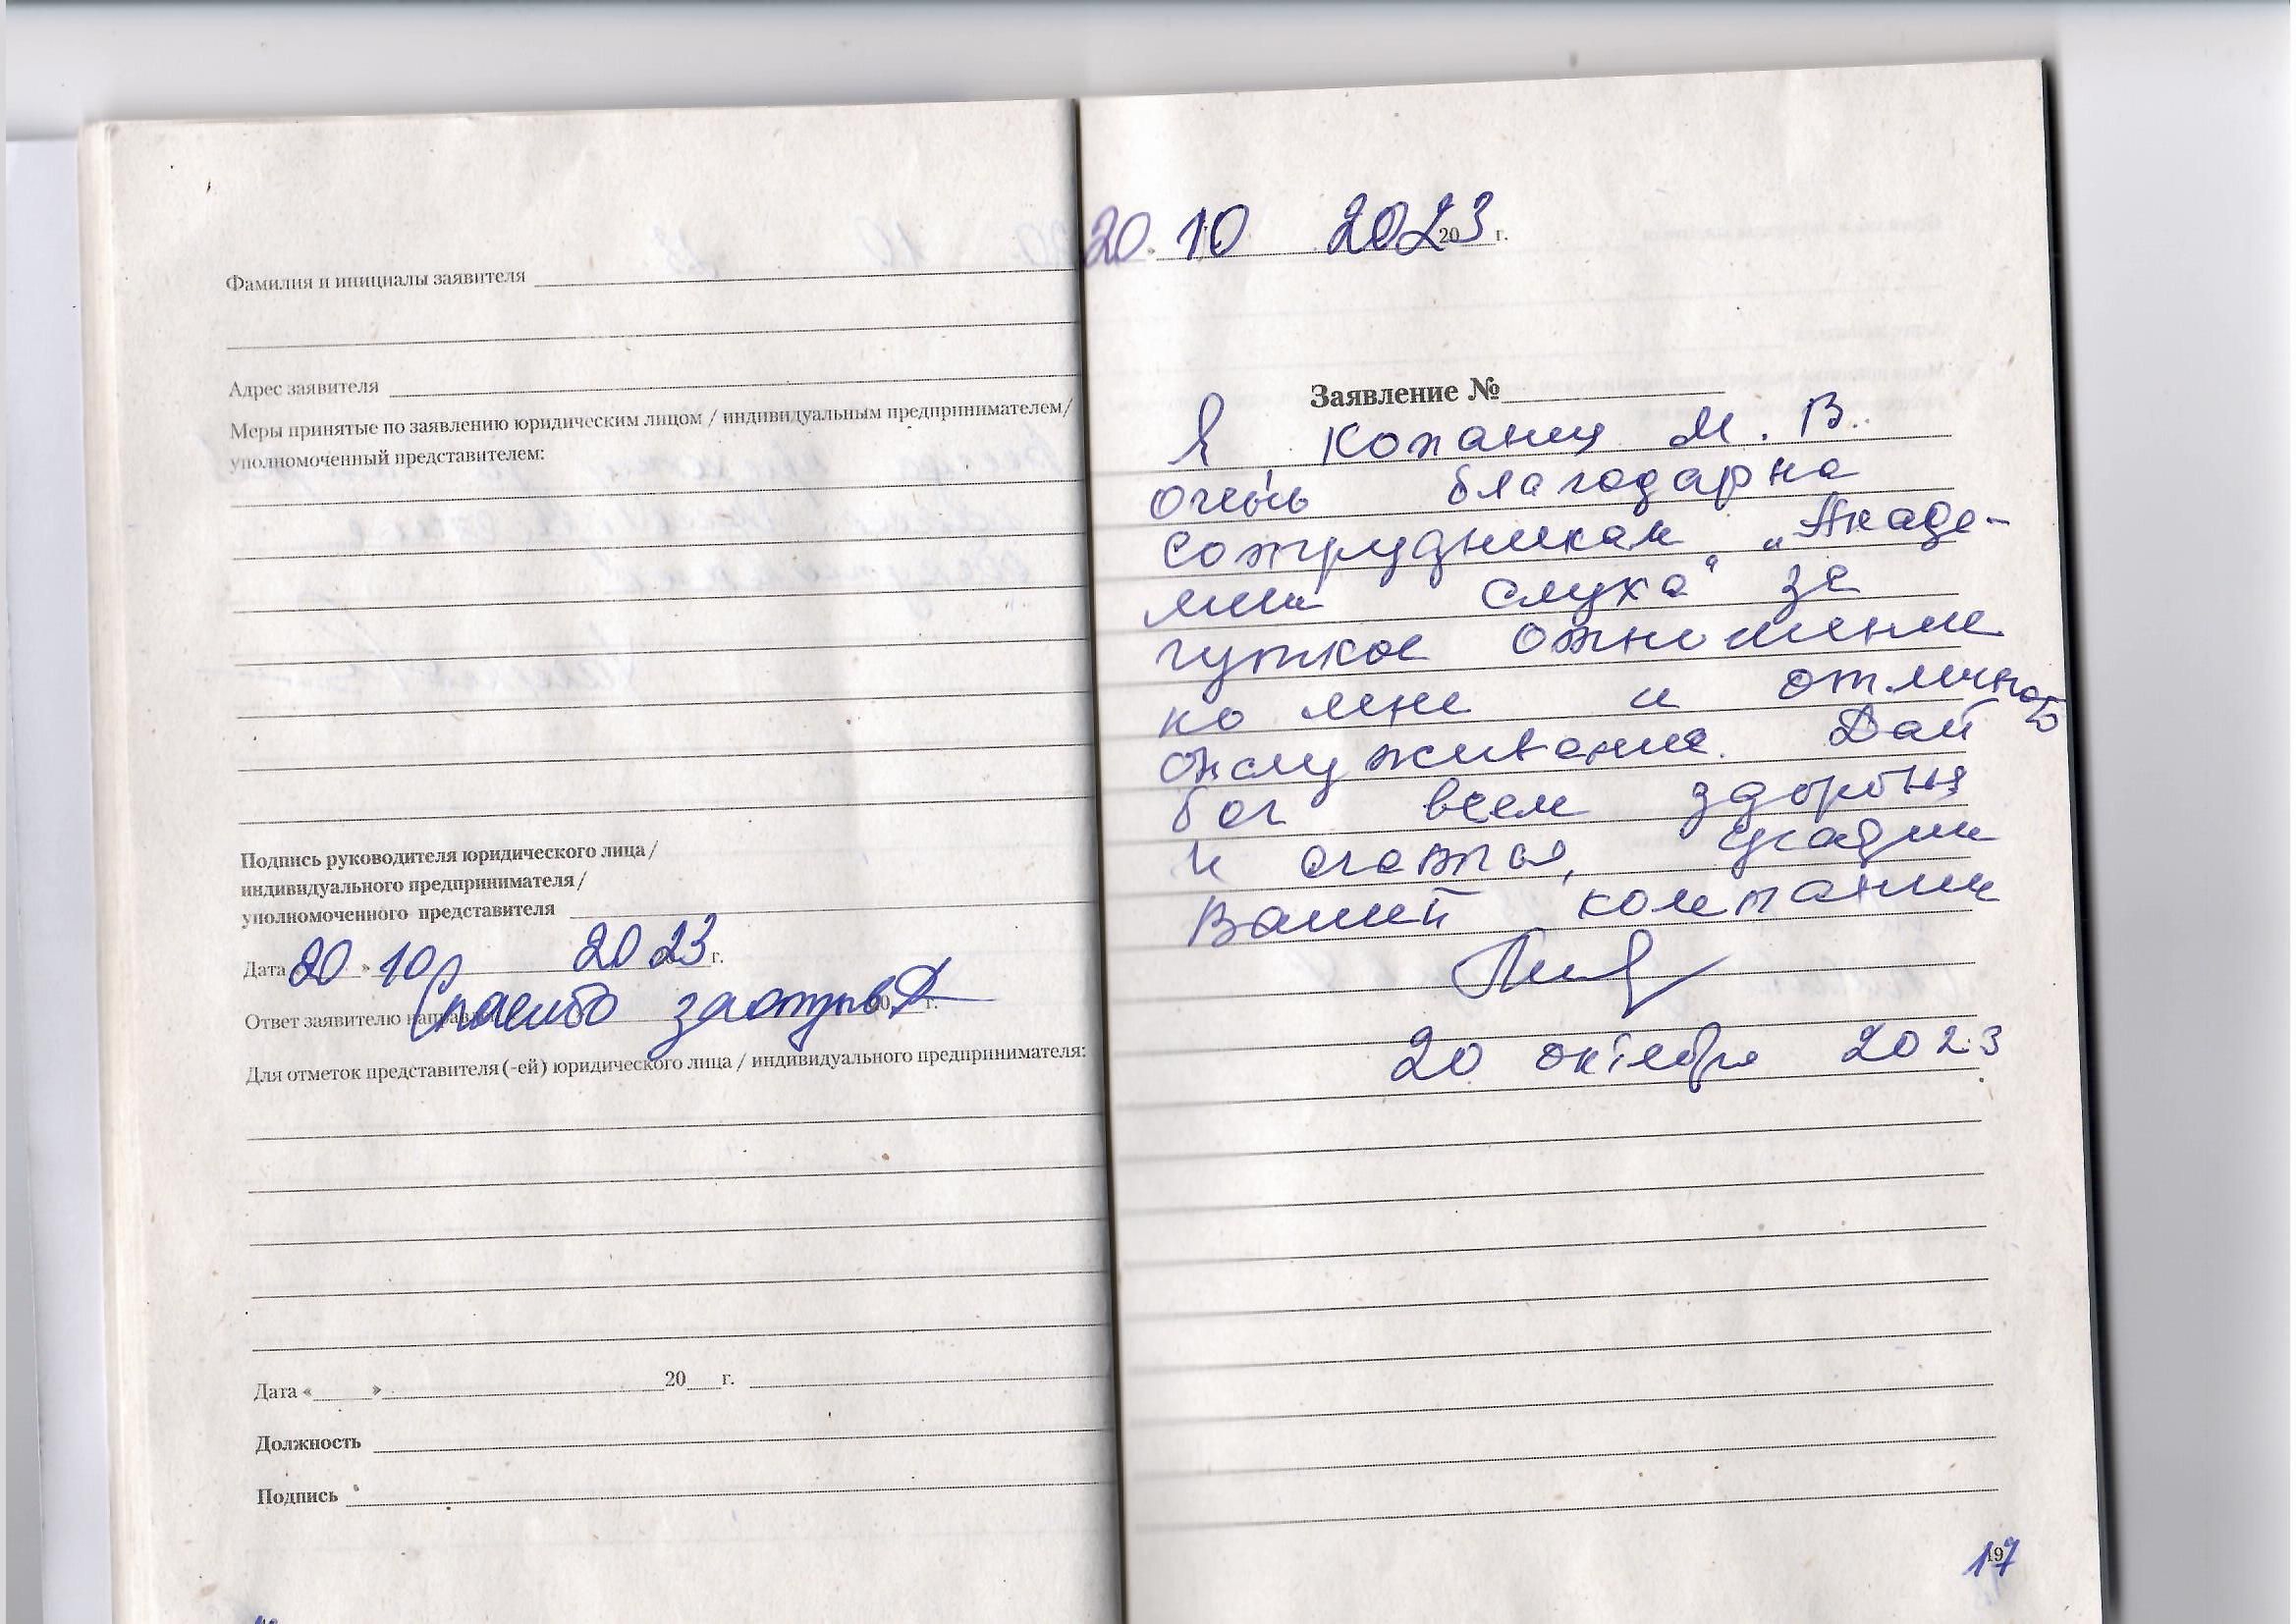 Фамилия и инициалы заявителя
Адрес заявителя
Меры принятые по заявлению юридическим лицом / индивидуальным предпринимателем/
уполномоченный представителем:
Подпись руководителя юридического лица /
индивидуального предпринимателя /
уполномоченного представителя
Дата «20» 10 2023 г.
Ответ заявителю направл Спасибо за отзыв 20 г.
Для отметок представителя (-ей) юридического лица / индивидуального предпринимателя:
Дата « » 20 г.
Должность
Подпись
20. 10 2023 20 г.
Заявление №
Я М. В.
очень благодарна
сотрудникам „Акаде-
мии слуха" за
чуткое отношение
ко мне и отличное
обслуживание. Дай
бог всем здоровья
и счастья, удачи
Вашей компании
20 октября 2023
17